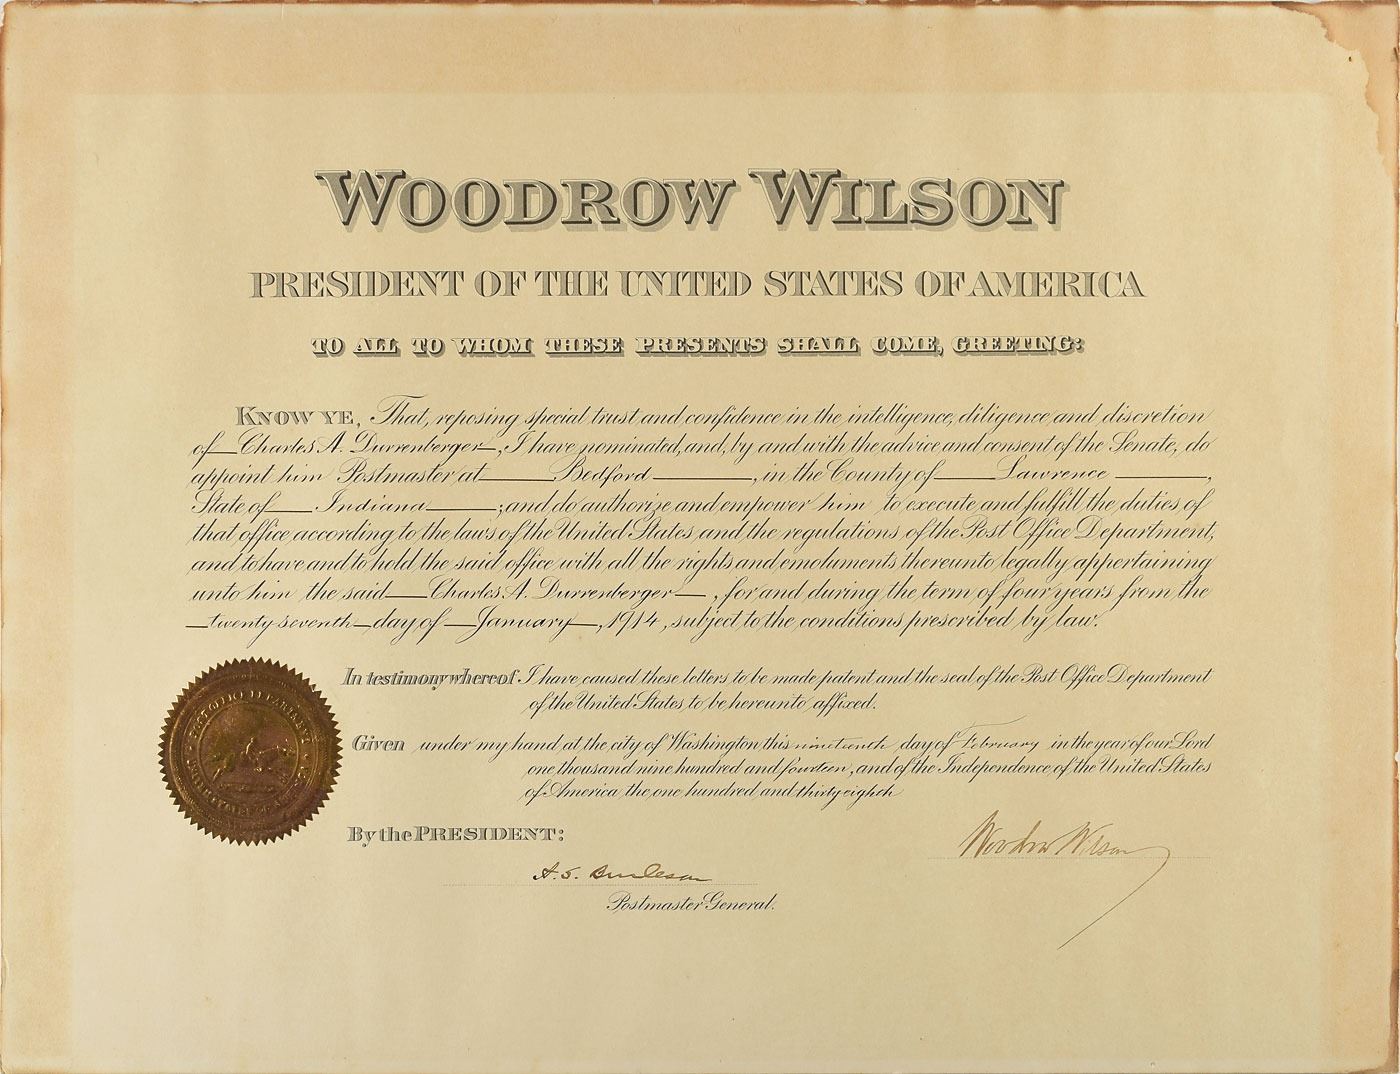 WOODROW WILSON
PRESIDENT OF THE UNITED STATES OF AMERICA
TO ALL TO WHOM THESE PRESENTS SHALL COME, GREETING:
KNOW YE, That, reposing special trust and confidence in the intelligence, diligence and discretion
of Charles A. Durrenberger, I have nominated, and, by and with the advice and consent of the Senate, do
appoint him Postmaster at Bedford, in the County of Lawrence,
State of Indiana; and do authorize and empower him to execute and fulfill the duties of
that office according to the laws of the United States and the regulations of the Post Office Department,
and to have and to hold the said office with all the rights and emoluments thereunto legally appertaining
unto him the said Charles A. Durrenberger, for and during the term of four years from the
twenty seventh day of January, 1914, subject to the conditions prescribed by law.
In testimony whereof I have caused these letters to be made patent and the seal of the Post Office Department
of the United States to be hereunto affixed.
Given under my hand at the city of Washington this nineteenth day of February in the year of our Lord
one thousand nine hundred and fourteen, and of the Independence of the United States
of America the one hundred and thirty eighth
By the PRESIDENT:
Woodrow Wilson
A. S. Burleson
Postmaster General.
POST OFFICE DEPARTMENT
UNITED STATES OF AMERICA